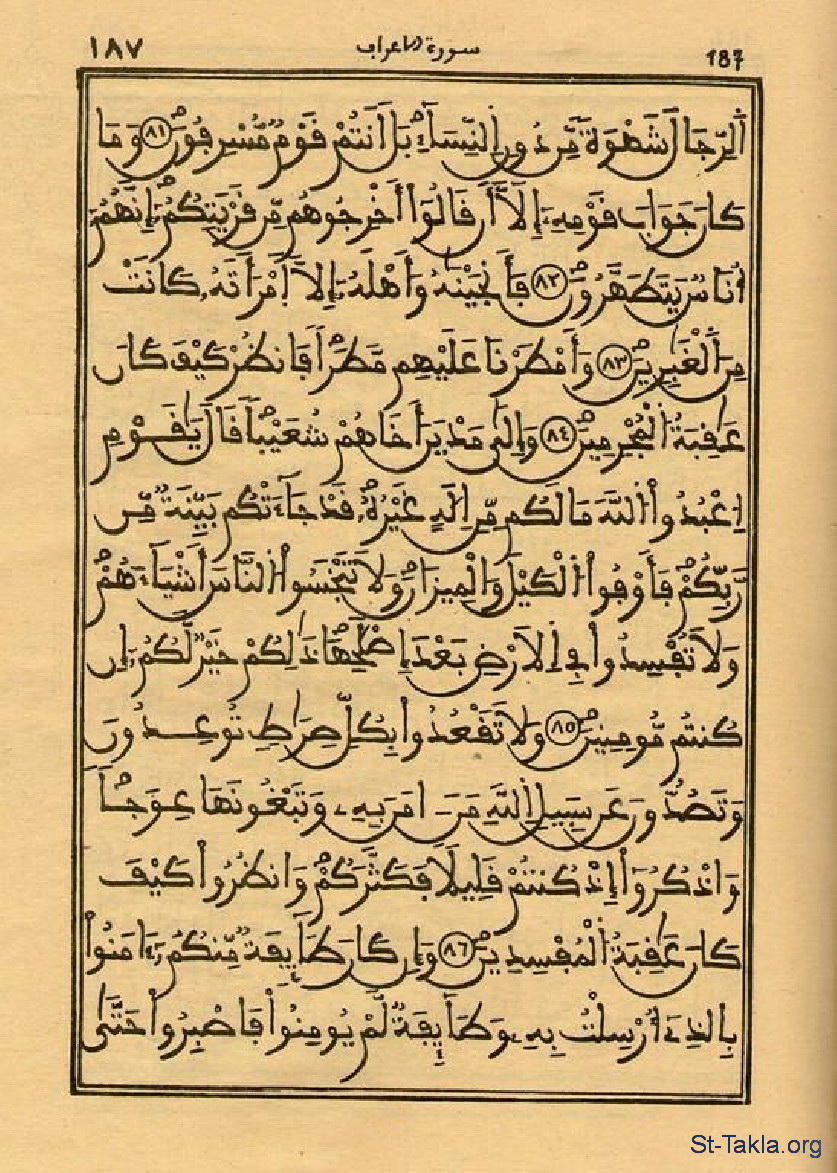 ١٨٧ سورة الاعراف 187
اَ۬لرِّجَالَ شَهْوَةٗ مِّن دُونِ اِ۬لنِّسَآءِۖ بَلَ اَنتُمْ قَوْمٞ مُّسْرِفُونَۖ ٨١ وَمَا
كَانَ جَوَابَ قَوْمِهِۦٓ إِلَّآ أَن قَالُوٓاْ أَخْرِجُوهُم مِّن قَرْيَتِكُمُۥٓۖ إِنَّهُمُۥٓ
أُنَاسٞ يَتَطَهَّرُونَۖ ٨٢ فَأَنجَيْنَٰهُ وَأَهْلَهُۥٓ إِلَّا اَ۪مْرَأَتَهُۥ كَانَتْ
مِنَ اَ۬لْغَٰبِرِينَۖ ٨٣ وَأَمْطَرْنَا عَلَيْهِم مَّطَراٗۖ فَانظُرْ كَيْفَ كَانَ
عَٰقِبَةُ اُ۬لْمُجْرِمِينَۖ ٨٤ وَإِلَىٰ مَدْيَنَ أَخَاهُمْ شُعَيْباٗۖ قَالَ يَٰقَوْمِ
اِ۟عْبُدُواْ اُ۬للَّهَ مَا لَكُم مِّنِ اِلَٰهٍ غَيْرُهُۥۖ قَدْ جَآءَتْكُم بَيِّنَةٞ مِّن
رَّبِّكُمْۖ فَأَوْفُواْ اُ۬لْكَيْلَ وَالْمِيزَانَۖ وَلَا تَبْخَسُواْ اُ۬لنَّاسَ أَشْيَآءَهُمْۖ
وَلَا تُفْسِدُواْ فِے اِ۬لَارْضِ بَعْدَ إِصْلَٰحِهَاۖ ذَٰلِكُمْ خَيْرٞ لَّكُمُۥٓ إِن
كُنتُم مُّومِنِينَۖ ٨٥ وَلَا تَقْعُدُواْ بِكُلِّ صِرَٰطٖ تُوعِدُونَ
وَتَصُدُّونَ عَن سَبِيلِ اِ۬للَّهِ مَنَ اٰمَنَ بِهِۦ وَتَبْغُونَهَا عِوَجاٗۖ
وَاذْكُرُوٓاْ إِذْ كُنتُمْ قَلِيلاٗ فَكَثَّرَكُمْۖ وَانظُرُواْ كَيْفَ
كَانَ عَٰقِبَةُ اُ۬لْمُفْسِدِينَۖ ٨٦ وَإِن كَانَ طَآئِفَةٞ مِّنكُمُۥٓ ءَامَنُواْ
بِالذِےٓ أُرْسِلْتُ بِهِۦ وَطَآئِفَةٞ لَّمْ يُومِنُواْ فَاصْبِرُواْ حَتَّىٰ
St-Takla.org